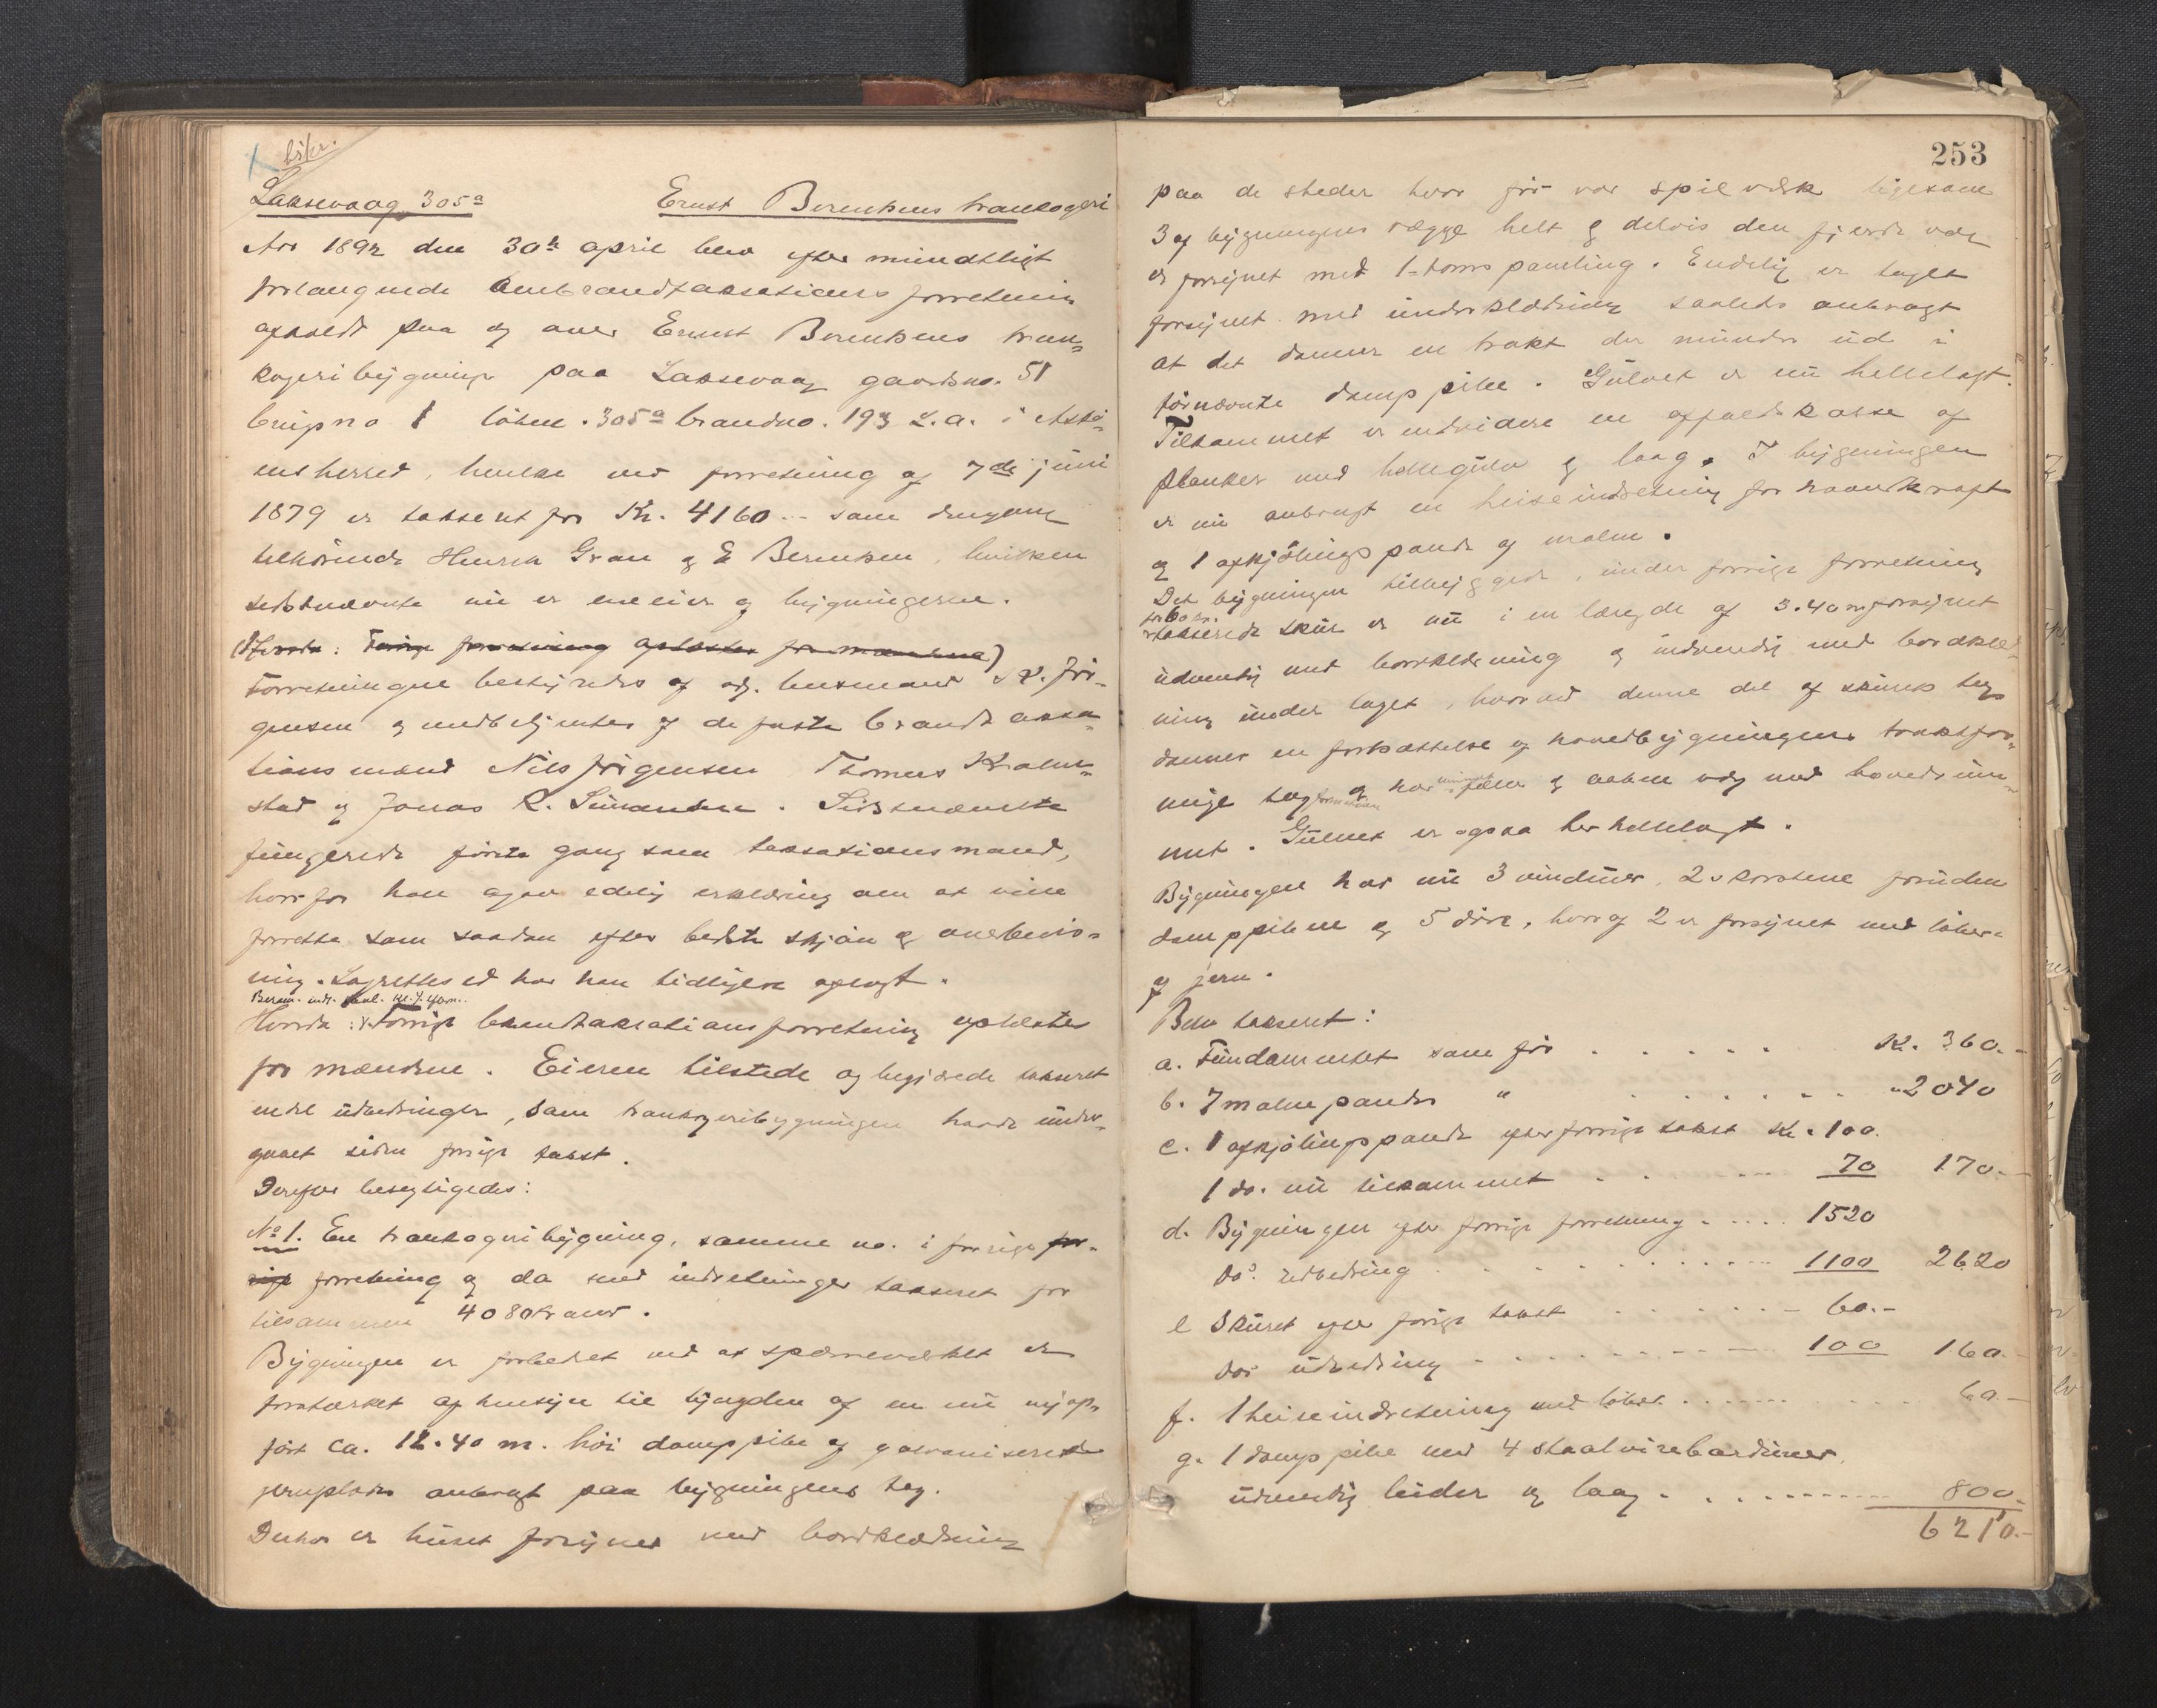 bskr.
Laksevaag 305a Ernst Berentsens trankogeri
Aar 1892 den 30te april blev efter mundtligt
forlangende ombrandtaksationsforretning
afholdt paa og over Ernst Berentsens tran-
kogeribygning paa Laksevaag gaardsno. 51
brugsno 1 løbene. 305a brandno. 193 L.a. i Askø-
ens herred, hvilke ved forretning af 7de juni
1879 er taksert for Kr. 4160.- som dengang
tilhørende Henrik Gran og E Berentsen, hvilken
sidstnævnte nu er eneeier af bygningerne.
(Hvorda: Forrige forretning oplæstes for mændene)
Forretningen bestyredes af adj. lensmand K. Jør-
gensen og medbetjentes af de faste brandtaksa-
tionsmænd Nils Jørgensen Thomas
stad og Jonas R. Simonsen. Sidstnævnte
fungerede første gang som taksationsmand,
hvorfor han afgav edelig erklæring om at ville
forrette som saadan efter bedste skjøn og overbevis-
ning. Lagrettesed har han tidligere aflagt.
Hvorda: Forrige brandtaksationsforretning oplæstes
for mændene. Eieren tilstede og begjærede taksert
endel udbedringer, som trankogeribygningen havde under-
gaaet siden forrige takst.
Derefter besigtigedes:
No 1. En trankogeribygning, samme no. i forrige for-
rige forretning og da med indretninger taksert for
tilsammen 4080 kroner.
Bygningen er forbedret ved at spærreverket er
forstærket af hensyn til tyngden af en nu nyop-
ført ca. 12.40 m. høi damppibe af galvaniserede
jernplader anbragt paa bygningens tag.
Derhos er huset forsynet med bordklædning
253
paa de steder hvor før var spilverk ligesom
3 af bygningens vægge helt og delvis den fjerde væg
er forsynet med 1-toms paneling. Endelig er taget
forsynet med underklædning saaledes anbragt
at det danner en trakt der munder ud i
førnævnte damppibe. Gulvet er nu hellelagt.
Tilkommet er endvidere en affaldskasse af
planker med hellegulv og laag. I bygningen
er nu anbragt en heiseindretning for haandkraft
og 1 afkjølingspande af malm.
Det bygningen tilbyggede, under forrige forretning
for 60 kr.
takserede skur er nu i en længde af 3.40 m forsynet
udvendig med bordklædning og indvendig med bordklæd-
ning under taget, hvorved denne del af skurets tag
danner en fortsættelse af hovedbygningens traktfor-
mige tag og har og aaben væg mod hovedrum-
met. Gulvet er ogsaa her hellelagt.
Bygningen har nu 3 vinduer, 2 skorstene foruden
damppiben og 5 døre, hvoraf 2 er forsynet med løber-
af jern.
Blev taksert:
a. Fundamentet som før . . . . . K. 360.-
b. 7 malmpander " . . . . . . " 2040
c. 1 afkjølingspande efter forrige takst Kr. 100.
1 do. nu tilkommet . . . . . 70 170.-
d. Bygningen efter forrige forretning . . . . 1520
Do. udbedring . . . . . . . . 1100 2620
e Skuret efter forrige takst . . . . . 60.-
Do. udbedring . . . . . . . 100 160.-
f. 1 heiseindretning med tilbeh. . . . . . . 60.-
g. 1 damppibe med 4 staalvirebarduner,
udvendig leider og laag . . . . . . . 800.-
6210.-